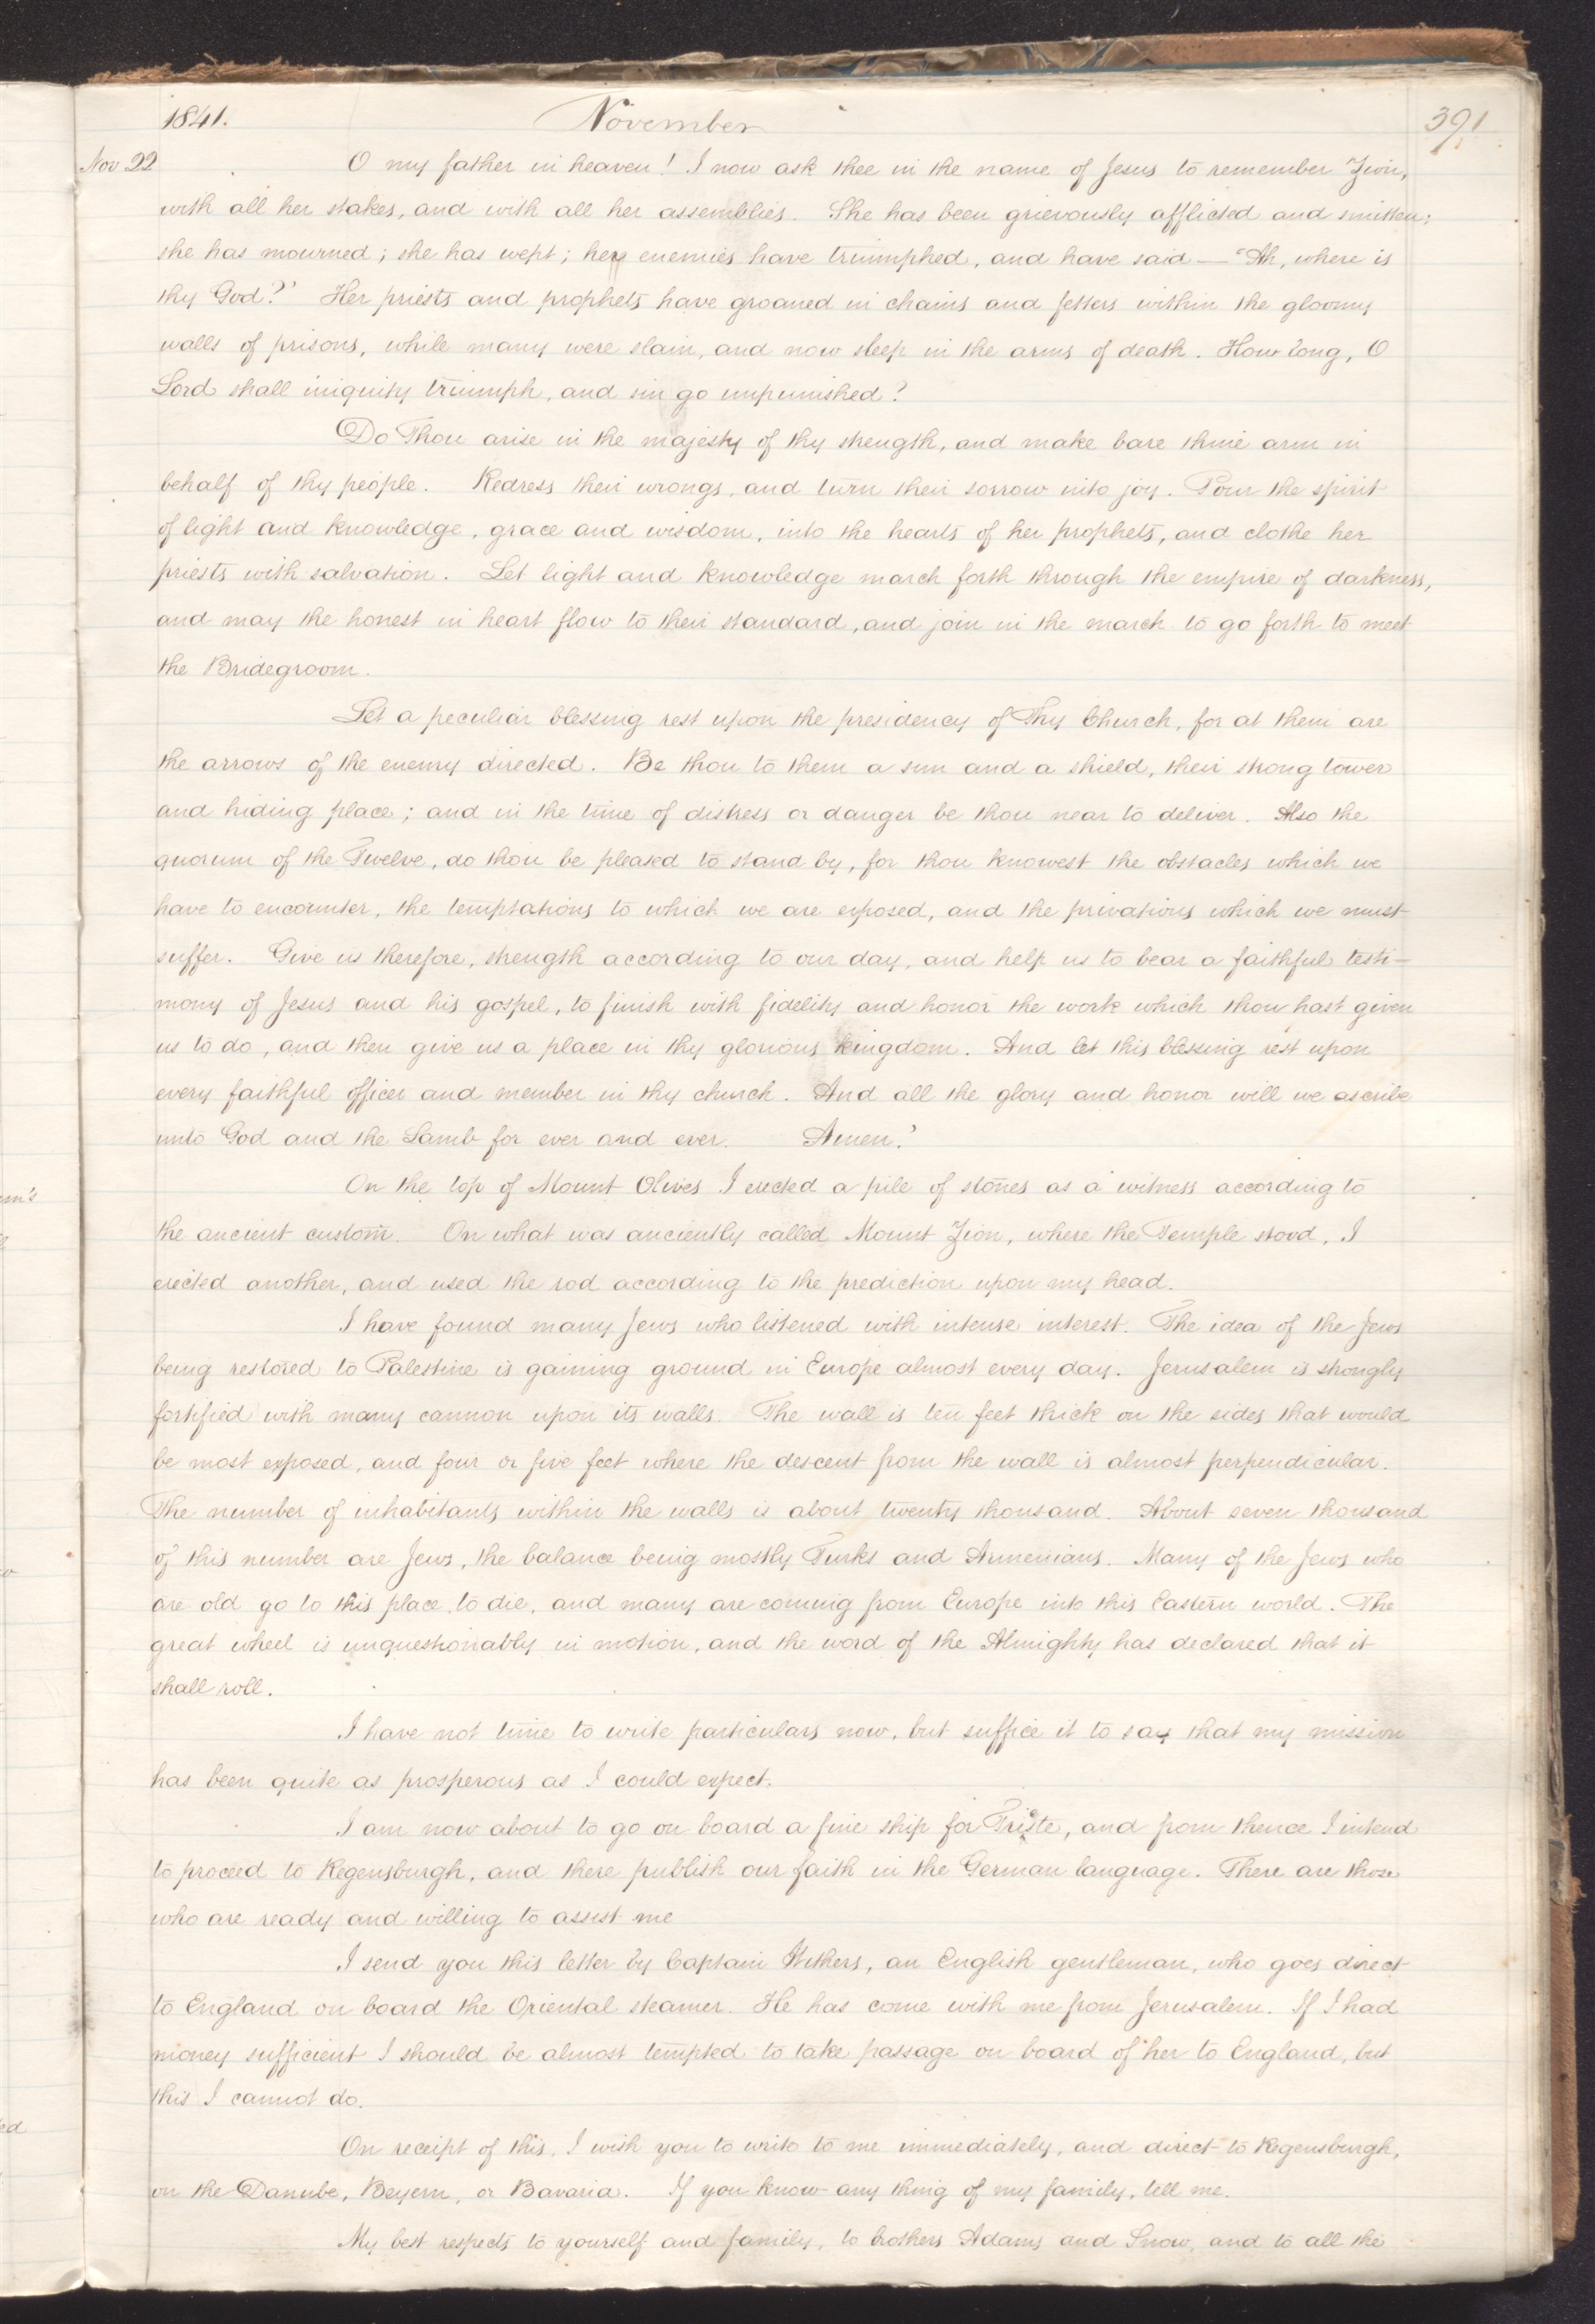 1841. November 391
Nov 22 O my father in heaven! I now ask thee in the name of Jesus to remember Zion,
with all her stakes, and with all her assemblies. She has been grievously afflicted and smitten;
she has mourned; she has wept; her enemies have triumphed, and have said — "Ah, where is
thy God?' Her priests and prophets have groaned in chains and fetters within the gloomy
walls of prisons, while many were slain, and now sleep in the arms of death. How long, O
Lord shall iniquity triumph, and sin go unpunished?
Do Thou arise in the majesty of thy strength, and make bare thine arm in
behalf of thy people. Redress their wrongs, and turn their sorrow into joy. Pour the spirit
of light and knowledge, grace and wisdom, into the hearts of her prophets, and clothe her
priests with salvation. Let light and knowledge march forth through the empire of darkness,
and may the honest in heart flow to their standard, and join in the march to go forth to meet
the Bridegroom.
Let a peculiar blessing rest upon the presidency of Thy Church, for at them are
the arrows of the enemy directed. Be thou to them a sun and a shield, their strong tower
and hiding place; and in the time of distress or danger be thou near to deliver. Also the
quorum of the Twelve, do thou be pleased to stand by, for thou knowest the obstacles which we
have to encounter, the temptations to which we are exposed, and the privations which we must
suffer. Give us therefore, strength according to our day, and help us to bear a faithful testi-
mony of Jesus and his gospel, to finish with fidelity and honor the work which thou hast given
us to do, and then give us a place in thy glorious kingdom. And let this blessing rest upon
every faithful officer and member in thy church. And all the glory and honor will we ascribe
unto God and the Lamb for ever and ever. Amen.'
On the top of Mount Olives I erected a pile of stones as a witness according to
the ancient custom. On what was anciently called Mount Zion, where the Temple stood, I
erected another, and used the rod according to the prediction upon my head.
I have found many Jews who listened with intense interest. The idea of the Jews
being restored to Palestine is gaining ground in Europe almost every day. Jerusalem is strongly
fortified with many cannon upon its walls. The wall is ten feet thick on the sides that would
be most exposed, and four or five feet where the descent from the wall is almost perpendicular.
The number of inhabitants within the walls is about twenty thousand. About seven thousand
of this number are Jews, the balance being mostly Turks and Armenians. Many of the Jews who
are old go to this place to die, and many are coming from Europe into this Eastern world. The
great wheel is unquestionably in motion, and the word of the Almighty has declared that it
shall roll.
I have not time to write particulars now, but suffice it to say that my mission
has been quite as prosperous as I could expect.
I am now about to go on board a fine ship for Trieste, and from thence I intend
to proceed to Regensburgh, and there publish our faith in the German language. There are those
who are ready and willing to assist me
I send you this letter by Captain Withers, an English gentleman, who goes direct
to England on board the Oriental steamer. He has come with me from Jerusalem. If I had
money sufficient I should be almost tempted to take passage on board of her to England, but
this I cannot do.
On receipt of this, I wish you to write to me immediately, and direct to Regensburgh,
on the Danube, Beyern, or Bavaria. If you know any thing of my family, tell me.
My best respects to yourself and family, to brothers Adams and Snow, and to all the